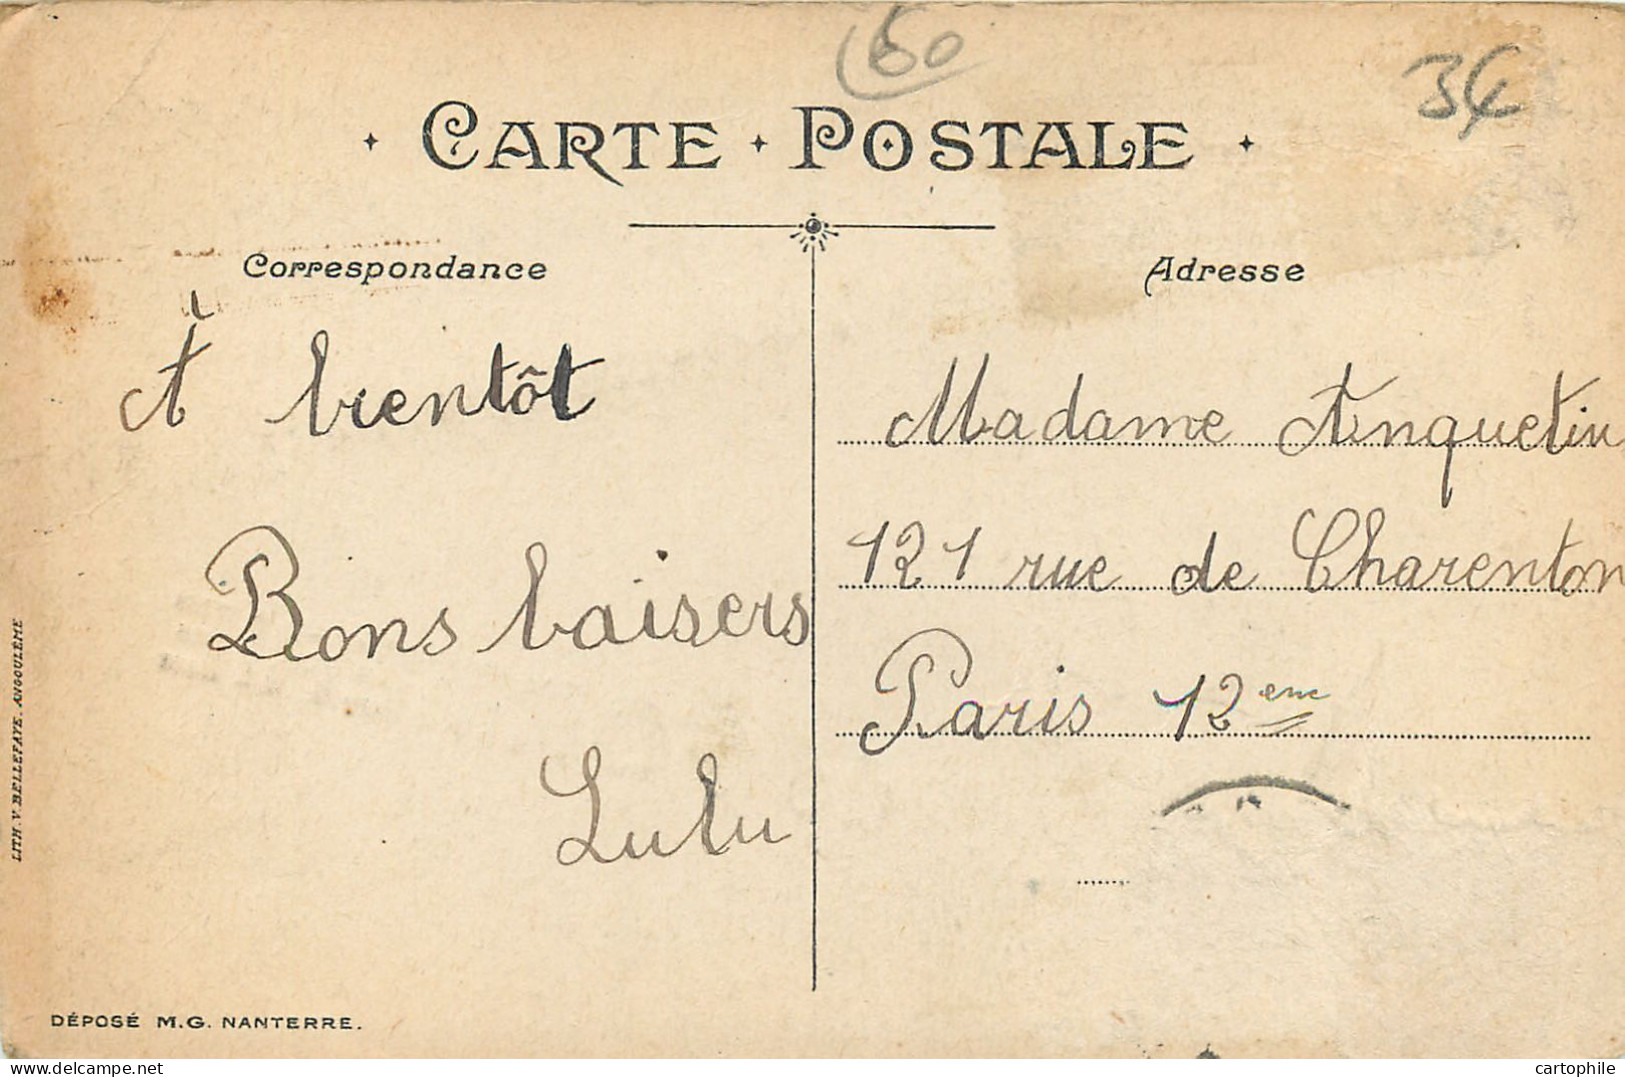 60
34
CARTE POSTALE
Correspondance
À bientôt
Bons baisers
Lulu
Adresse
Madame Anquetin
121 rue de Charenton
Paris 12eme
LITH. V. BELLEFAYE. ANGOULÊME
DÉPOSÉ M.G. NANTERRE.
cartophile